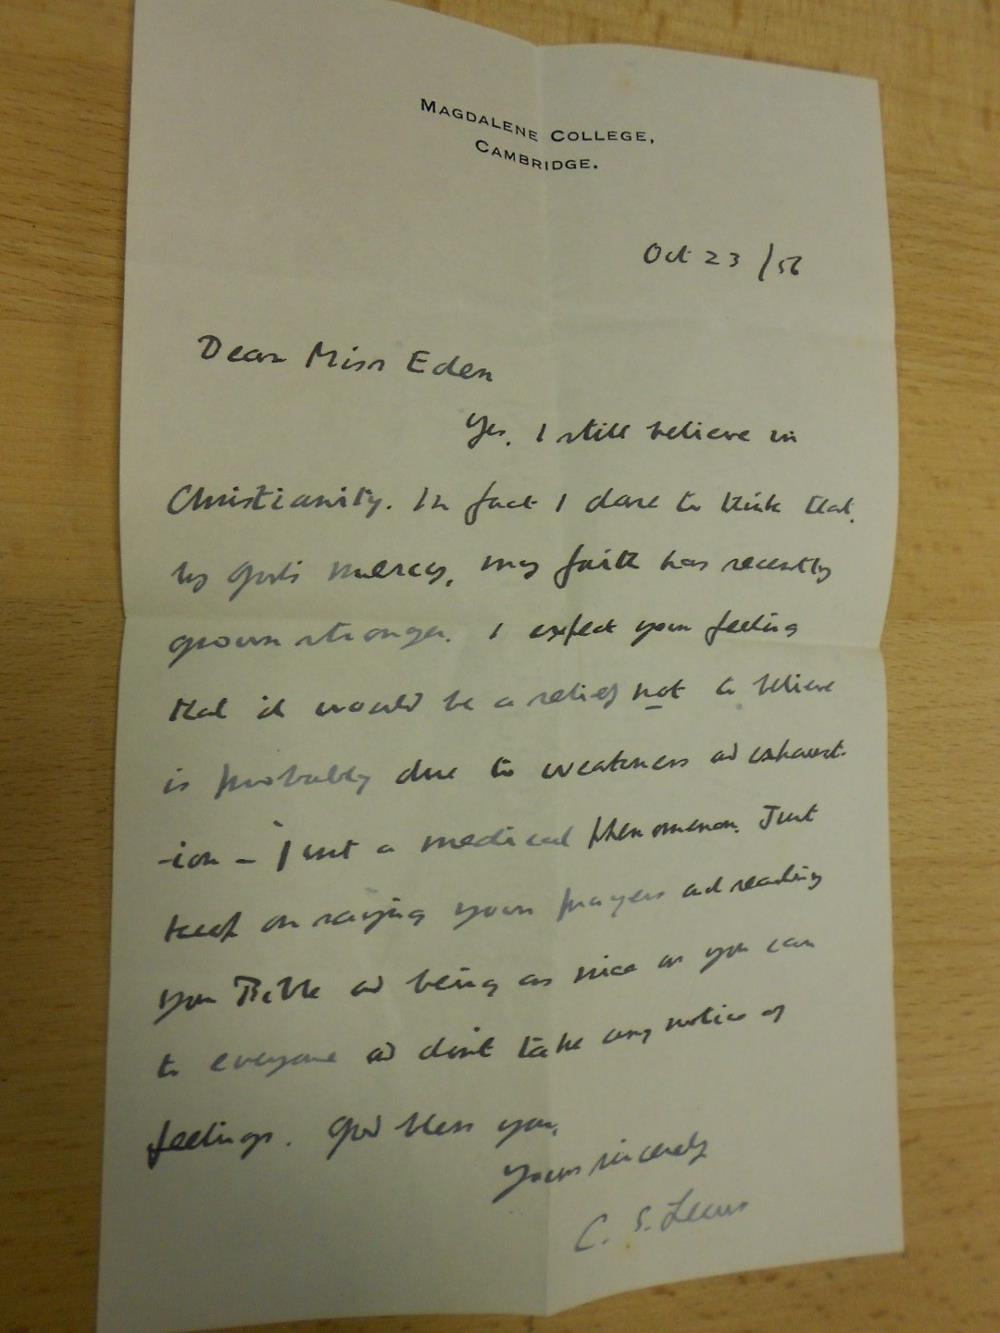 MAGDALENE COLLEGE,
CAMBRIDGE.
Oct 23/56
Dear Miss Eden
Yes, I still believe in
Christianity. In fact I dare to think that,
by God's mercy, my faith has recently
grown stronger. I expect your feeling
that it would be a relief not to believe
is probably due to weakness and exhaust-
-ion – just a medical phenomenon. Just
keep on saying your prayers and reading
your Bible and being as nice as you can
to everyone and don't take any notice of
feelings. God bless you.
Yours sincerely
C. S. Lewis